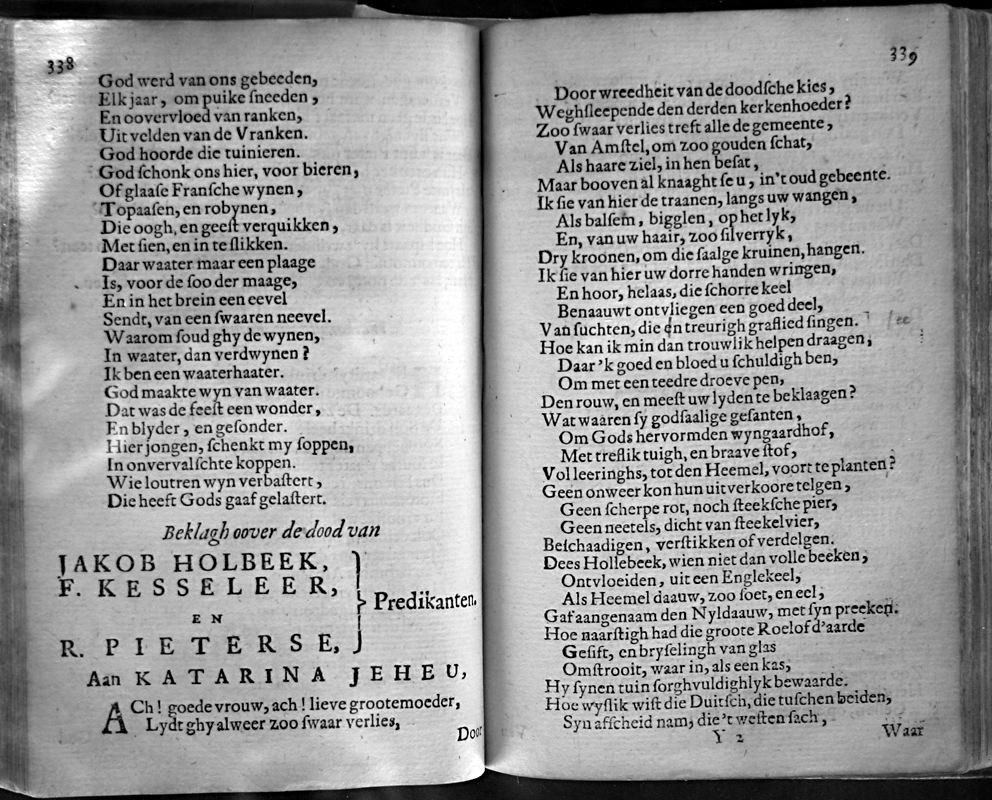 338
God werd van ons gebeeden,
Elk jaar, om puike sneeden,
En oovervloed van ranken,
Uit velden van de Vranken.
God hoorde die tuinieren.
God schonk ons hier, voor bieren,
Of glaase Fransche wynen,
Topaasen, en robynen,
Die oogh, en geest verquikken,
Met sien, en in te slikken.
Daar waater maar een plaage
Is, voor de soo der maage,
En in het brein een eevel
Sendt, van een swaaren neevel.
Waarom soud ghy de wynen,
In waater, dan verdwynen?
Ik ben een waaterhaater.
God maakte wyn van waater.
Dat was de feest een wonder,
En blyder, en gesonder.
Hier jongen, schenkt my soppen,
In onvervalschte koppen.
Wie loutren wyn verbastert,
Die heeft Gods gaaf gelastert.
Beklagh oover de dood van
JAKOB HOLBEEK,
F. KESSELEER,
EN
R. PIETERSE,
Predikanten.
Aan KATARINA JEHEU,
ACh! goede vrouw, ach! lieve grootemoeder,
Lydt ghy alweer zoo swaar verlies,
Door
339
Door wreedheit van de doodsche kies,
Weghsleepende den derden kerkenhoeder?
Zoo swaar verlies treft alle de gemeente,
Van Amstel, om zoo gouden schat,
Als haare ziel, in hen besat,
Maar booven al knaaght se u, in't oud gebeente.
Ik sie van hier de traanen, langs uw wangen,
Als balsem, bigglen, op het lyk,
En, van uw haair, zoo silverryk,
Dry kroonen, om die saalge kruinen, hangen.
Ik sie van hier uw dorre handen wringen,
En hoor, helaas, die schorre keel
Benaauwt ontvliegen een goed deel,
Van suchten, die en treurigh graflied singen.
Hoe kan ik min dan trouwlik helpen draagen,
Daar 'k goed en bloed u schuldigh ben,
Om met een teedre droeve pen,
Den rouw, en meest uw lyden te beklaagen?
Wat waaren sy godsaalige gesanten,
Om Gods hervormden wyngaardhof,
Met treflik tuigh, en braave stof,
Vol leeringhs, tot den Heemel, voort te planten?
Geen onweer kon hun uitverkoore telgen,
Geen scherpe rot, noch steeksche pier,
Geen neetels, dicht van steekelvier,
Beschaadigen, verstikken of verdelgen.
Dees Hollebeek, wien niet dan volle beeken,
Ontvloeiden, uit een Englekeel,
Als Heemel daauw, zoo soet, en eel,
Gaf aangenaam den Nyldaauw, met syn preeken.
Hoe naarstigh had die groote Roelof d'aarde
Gesift, en bryselingh van glas
Omstrooit, waar in, als een kas,
Hy synen tuin sorghvuldighlyk bewaarde.
Hoe wyslik wist die Duitsch, die tuschen beiden,
Syn afscheid nam, die 't westen sach,
Y 2
Waar